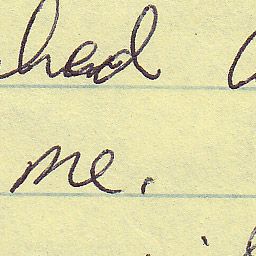 had
me.